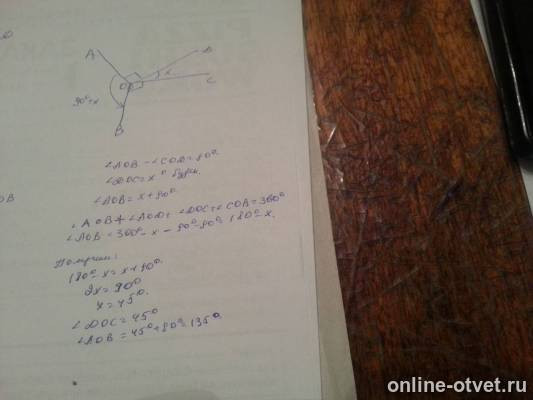 A
D
O
x
C
90°+x
B
∠AOB - ∠COD = 90°
∠DOC = x°
∠AOB = x + 90°.
∠AOB + ∠AOD + ∠DOC + ∠COB = 360°
∠AOB = 360° - x - 90° - 90° = 180° - x.
Получим:
180° - x = x + 90°
2x = 90°
x = 45°.
∠DOC = 45°
∠AOB = 45° + 90° = 135°
OB
online-otvet.ru